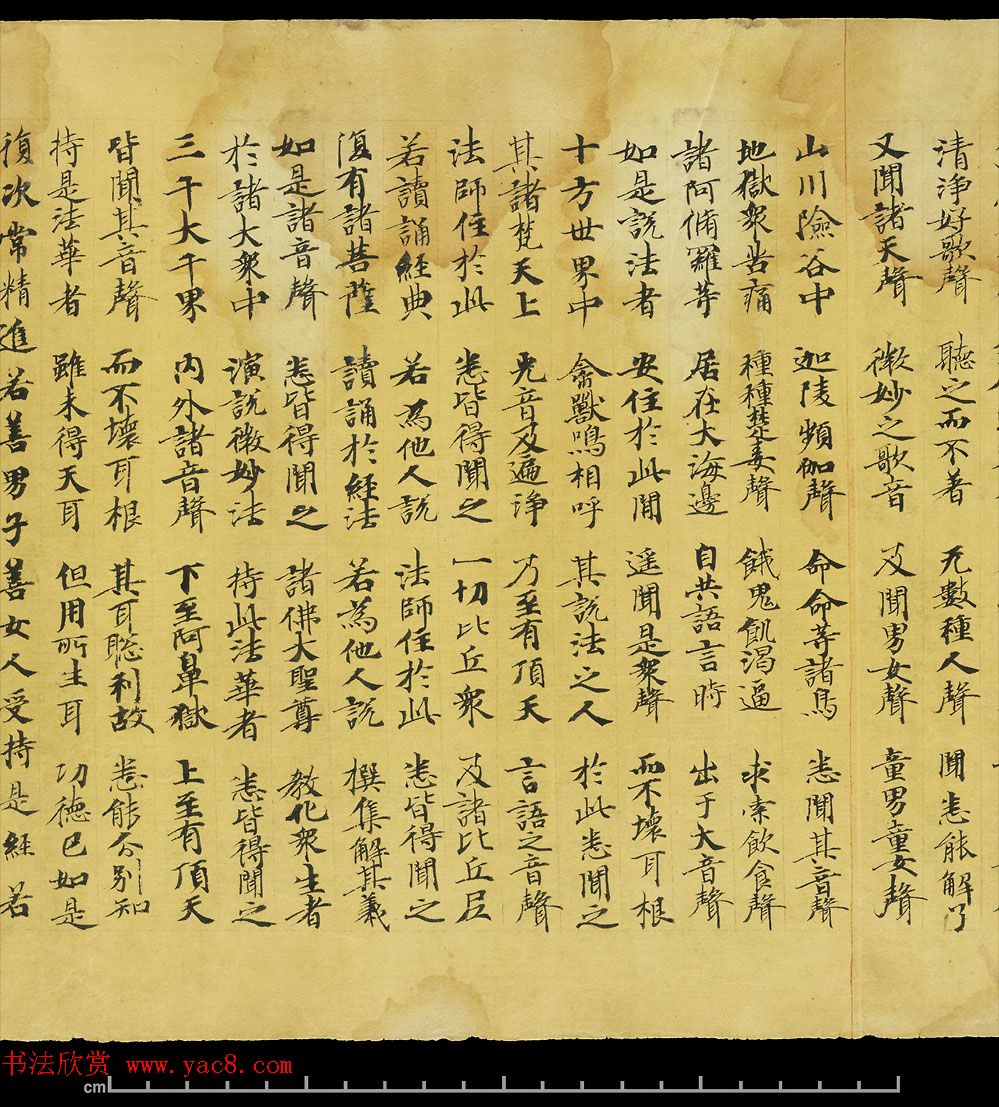 清浄好歌聲 聽之而不著 无數種人聲 聞悉能解了
又聞諸天聲 微妙之歌音 及聞男女聲 童男童女聲
山川險谷中 迦陵頻伽聲 命命等諸鳥 悉聞其音聲
地獄衆苦痛 種種楚毒聲 餓鬼飢渴逼 求索飲食聲
諸阿脩羅等 居在大海邊 自共語言時 出于大音聲
如是說法者 安住於此間 遥聞是衆聲 而不壞耳根
十方世界中 禽獸鳴相呼 其說法之人 於此悉聞之
其諸梵天上 光音及遍浄 乃至有頂天 言語之音聲
法師住於此 悉皆得聞之 一切比丘衆 及諸比丘尼
若讀誦經典 若為他人說 法師住於此 悉皆得聞之
復有諸菩薩 讀誦於經法 若為他人說 撰集解其義
如是諸音聲 悉皆得聞之 諸佛大聖尊 教化衆生者
於諸大衆中 演說微妙法 持此法華者 悉皆得聞之
三千大千界 內外諸音聲 下至阿鼻獄 上至有頂天
皆聞其音聲 而不壞耳根 其耳聡利故 悉能分別知
持是法華者 雖未得天耳 但用所生耳 功德已如是
復次常精進若善男子善女人受持是經若
书法欣赏 www.yac8.com
cm